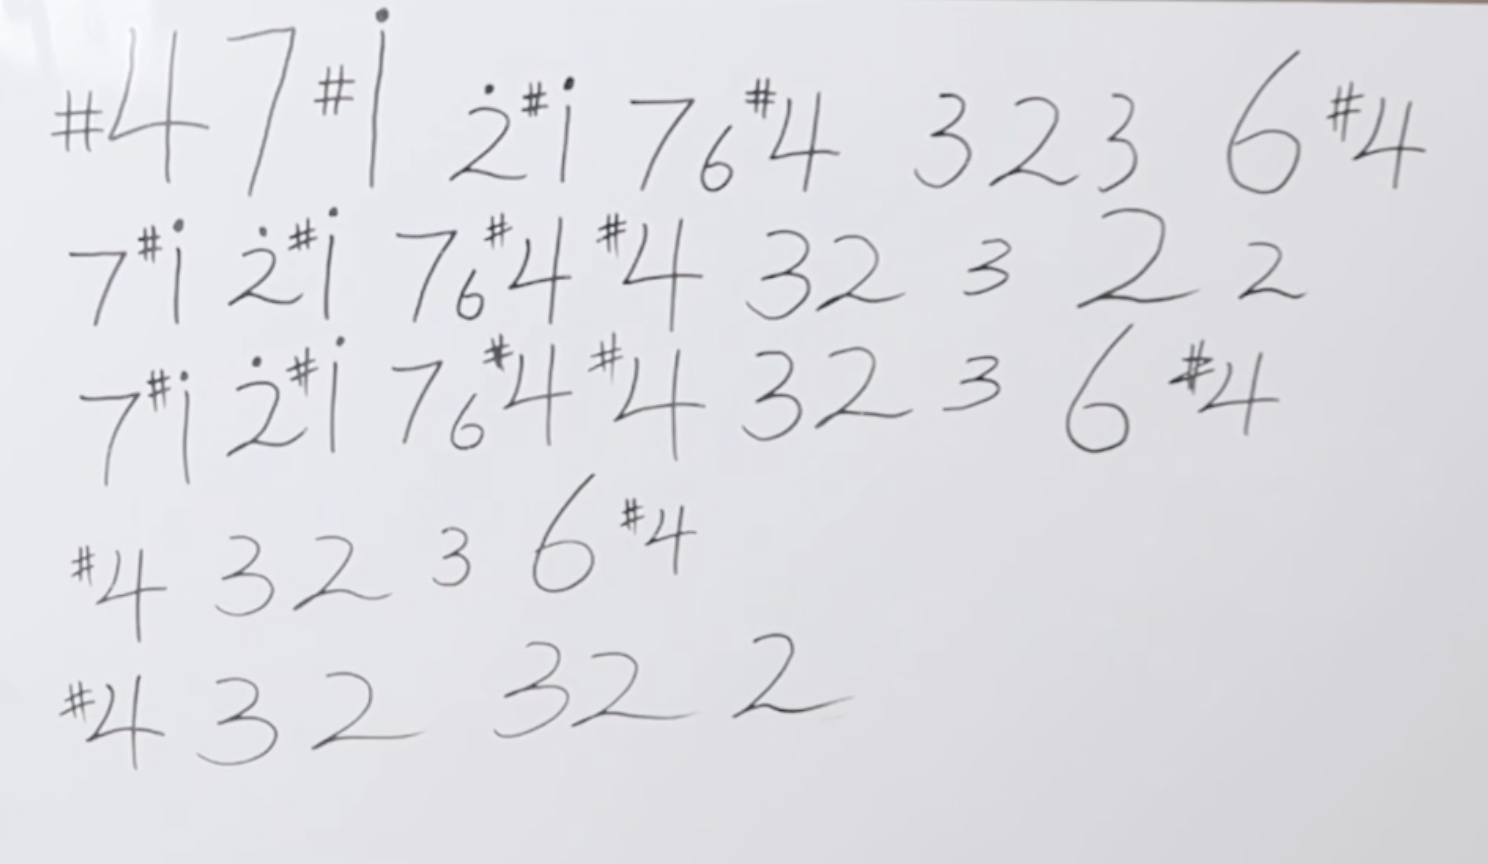 #47#i̇ 2̇#i̇76#4 323 6#4
7#i̇ 2̇#i̇ 76#4 #4 32 3 2 2
7#i̇ 2̇#i̇ 76#4 #4 32 3 6 #4
#4 32 3 6#4
#4 32 32 2